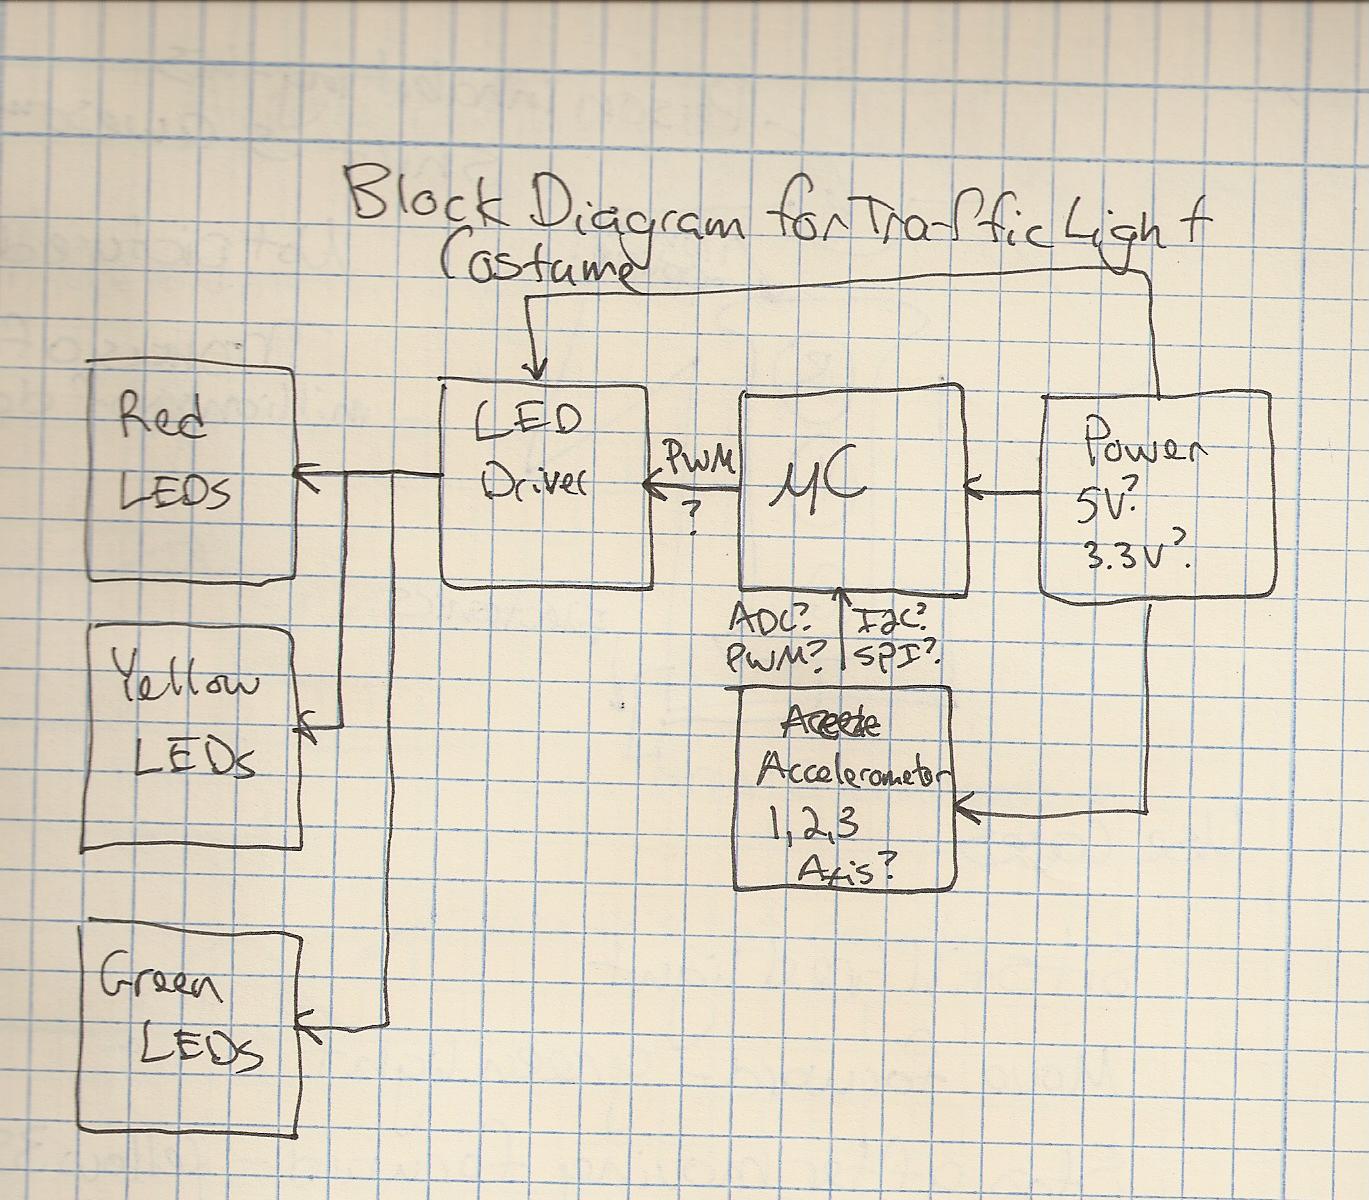 Block Diagram for Traffic Light
Costume
Red
LEDS
LED
Driver
PWM
?
μC
Power
5V?
3.3V?
ADC?
PWM?
I2C?
SPI?
Yellow
LEDs
Accelerometor
1,2,3
Axis?
Green
LEDs